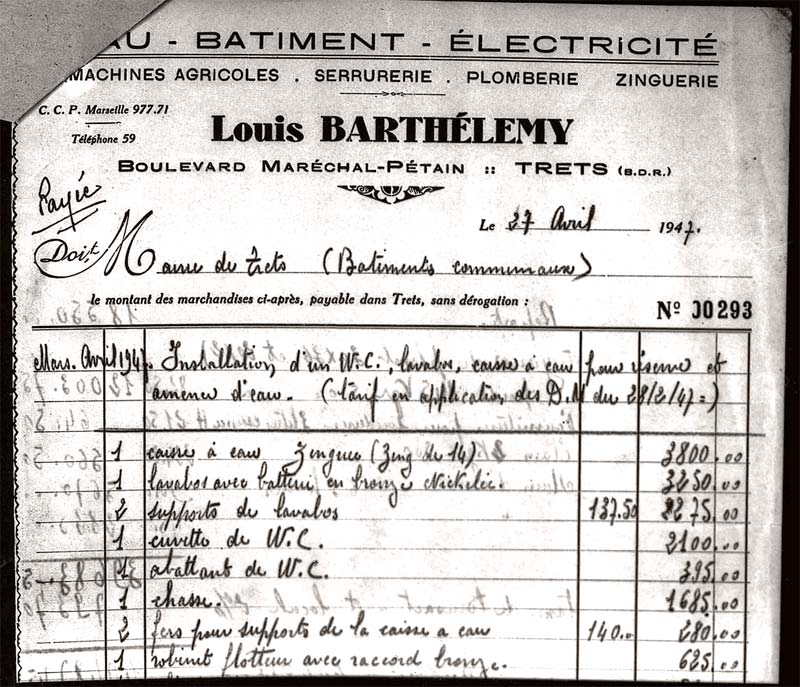 AU - BATIMENT - ÉLECTRiCITÉ
MACHINES AGRICOLES . SERRURERIE . PLOMBERIE ZINGUERIE
C. C. P. Marseille 977.71
Téléphone 59
Louis BARTHÉLEMY
BOULEVARD MARÉCHAL-PÉTAIN :: TRETS (B.D.R.)
Payée
Le 27 Avril 1947.
Doit Mairie de Trets (Batiments communaux)
le montant des marchandises ci-après, payable dans Trets, sans dérogation :
Nº 00293
Mars. Avril 1947. Installation, d'un W.C., lavabos, caisse à eau pour réserve et
amenee d'eau. (tarif en application, des D.M du 28/2/47=)
1 caisse à eau Zinguee (Zing de 14) 3800.00
1 lavabos avec batterie en bronze Nickelée. 3250.00
2 supports de lavabos 137.50 275.00
1 cuvette de W.C. 2100.00
1 abattant de W.C. 395.00
1 chasse. 1685.00
2 fers pour supports de la caisse a eau 140.00 280.00
1 robinet flotteur avec raccord bronze. 625.00